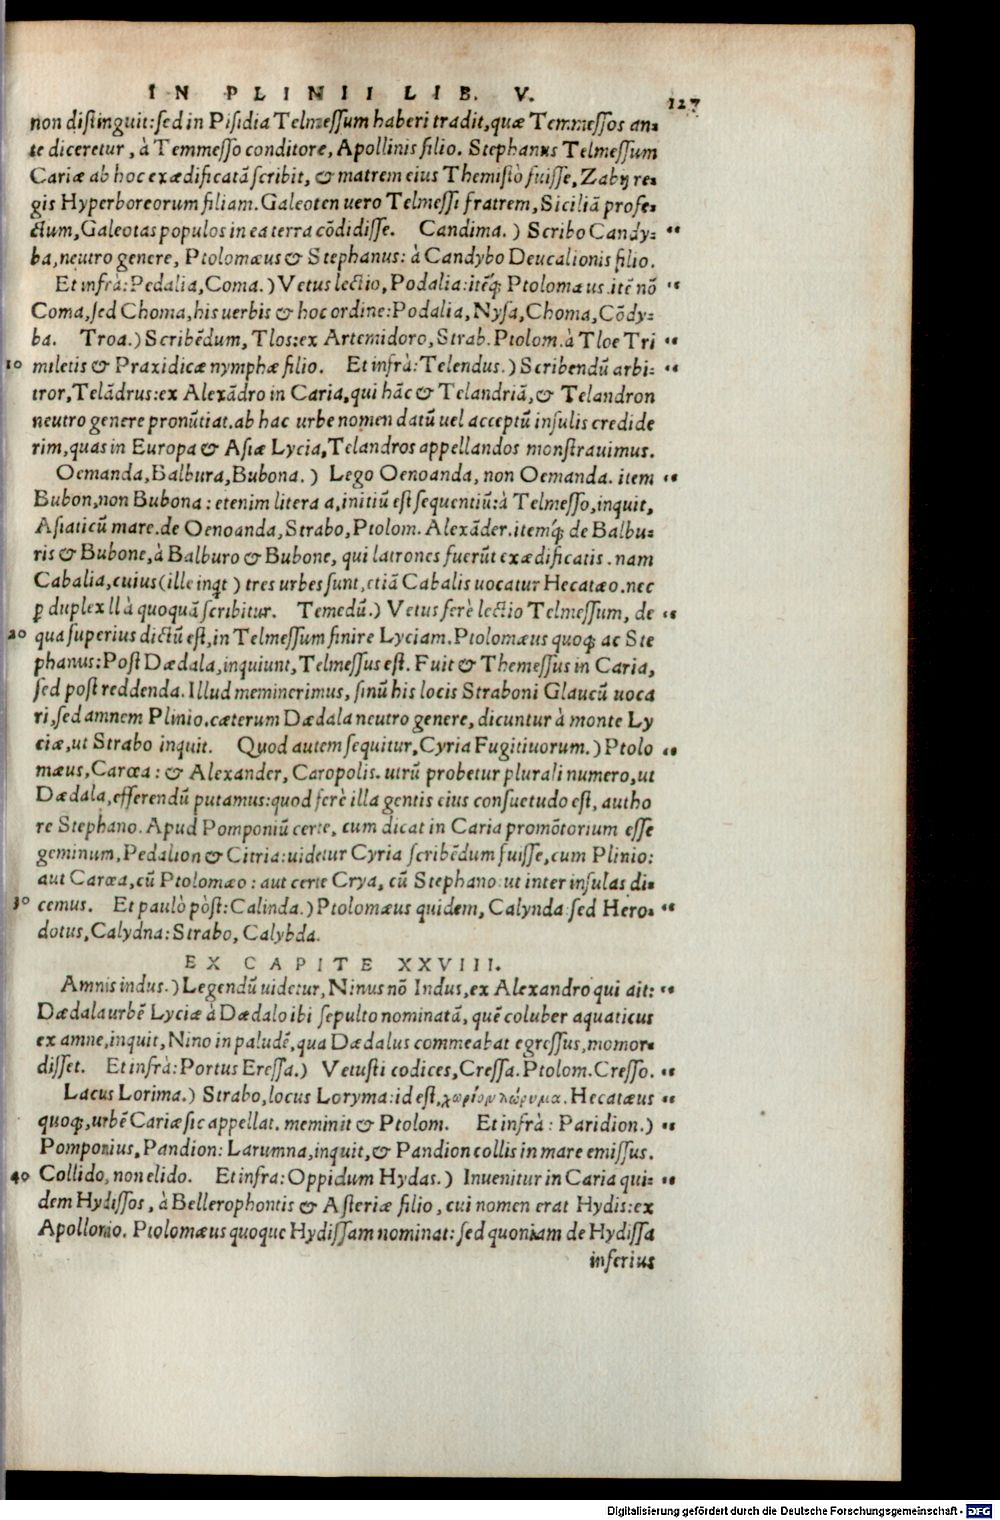 IN PLINII LIB. V. 127
non distinguit: sed in Pisidia Telmessum haberi tradit, quæ Temmessos an-
te diceretur, à Temmesso conditore, Apollinis filio. Stephanus Telmessum
Cariæ ab hoc exædificatã scribit, & matrem eius Themistò fuisse, Zabij re-
gis Hyperboreorum filiam. Galeoten uero Telmessi fratrem, Siciliã profe-
ctum, Galeotas populos in ea terra cõdidisse. Candima.) Scribo Candy- “
ba, neutro genere, Ptolomæus & Stephanus: à Candybo Deucalionis filio.
Et infrà: Pedalia, Coma.) Vetus lectio, Podalia: itẽq; Ptolomæus. itẽ nõ “
Coma, sed Choma, his uerbis & hoc ordine: Podalia, Nysa, Choma, Cõdy-
ba. Troa.) Scribẽdum, Tlos: ex Artemidoro, Strab. Ptolom. à Tloe Tri “
10 miletis & Praxidicæ nymphæ filio. Et infrà: Telendus.) Scribendũ arbi- “
tror, Telãdrus: ex Alexãdro in Caria, qui hãc & Telandriã, & Telandron
neutro genere pronũtiat. ab hac urbe nomen datũ uel acceptũ insulis credide
rim, quas in Europa & Asiæ Lycia, Telandros appellandos monstrauimus.
Oemanda, Balbura, Bubona.) Lego Oenoanda, non Oemanda. item “
Bubon, non Bubona: etenim litera a, initiũ est sequentiũ: à Telmesso, inquit,
Asiaticũ mare. de Oenoanda, Strabo, Ptolom. Alexãder. itemq́; de Balbu-
ris & Bubone, à Balburo & Bubone, qui latrones fuerũt exædificatis. nam
Cabalia, cuius (ille inqt) tres urbes sunt, etiã Cabalis uocatur Hecatæo. nec
ꝑ duplex ll à quoquã scribitur. Temedũ.) Vetus ferè lectio Telmessum, de “
20 qua superius dictũ est, in Telmessum finire Lyciam. Ptolomæus quoq; ac Ste
phanus: Post Dædala, inquiunt, Telmessus est. Fuit & Themessus in Caria,
sed post reddenda. Illud meminerimus, sinũ his locis Straboni Glaucũ uoca
ri, sed amnem Plinio. cæterum Dædala neutro genere, dicuntur à monte Ly
ciæ, ut Strabo inquit. Quod autem sequitur, Cyria Fugitiuorum.) Ptolo “
mæus, Carœa: & Alexander, Caropolis. utrũ probetur plurali numero, ut
Dædala, efferendũ putamus: quod ferè illa gentis eius consuetudo est, autho
re Stephano. Apud Pomponiũ certe, cum dicat in Caria promõtorium esse
geminum, Pedalion & Citria: uidetur Cyria scribẽdum fuisse, cum Plinio:
aut Carœa, cũ Ptolomæo: aut certe Crya, cũ Stephano: ut inter insulas di-
30 cemus. Et paulò pòst: Calinda.) Ptolomæus quidem, Calynda: sed Hero- “
dotus, Calydna: Strabo, Calybda.
EX CAPITE XXVIII.
Amnis indus.) Legendũ uidetur, Ninus nõ Indus, ex Alexandro qui ait: “
Dædala urbẽ Lyciæ à Dædalo ibi sepulto nominatã, quẽ coluber aquaticus
ex amne, inquit, Nino in paludẽ, qua Dædalus commeabat egressus, momor-
disset. Et infrà: Portus Eressa.) Vetusti codices, Cressa. Ptolom. Cresso. “
Lacus Lorima.) Strabo, locus Loryma: id est, χωρίον λώρυμα. Hecatæus “
quoq;, urbẽ Cariæ sic appellat. meminit & Ptolom. Et infrà: Paridion.) “
Pomponius, Pandion: Larumna, inquit, & Pandion collis in mare emissus.
40 Collido, non elido. Et infra: Oppidum Hydas.) Inuenitur in Caria qui- “
dem Hydissos, à Bellerophontis & Asteriæ filio, cui nomen erat Hydis: ex
Apollonio. Ptolomæus quoque Hydissam nominat: sed quoniam de Hydissa
inferius
Digitalisierung gefördert durch die Deutsche Forschungsgemeinschaft - DFG